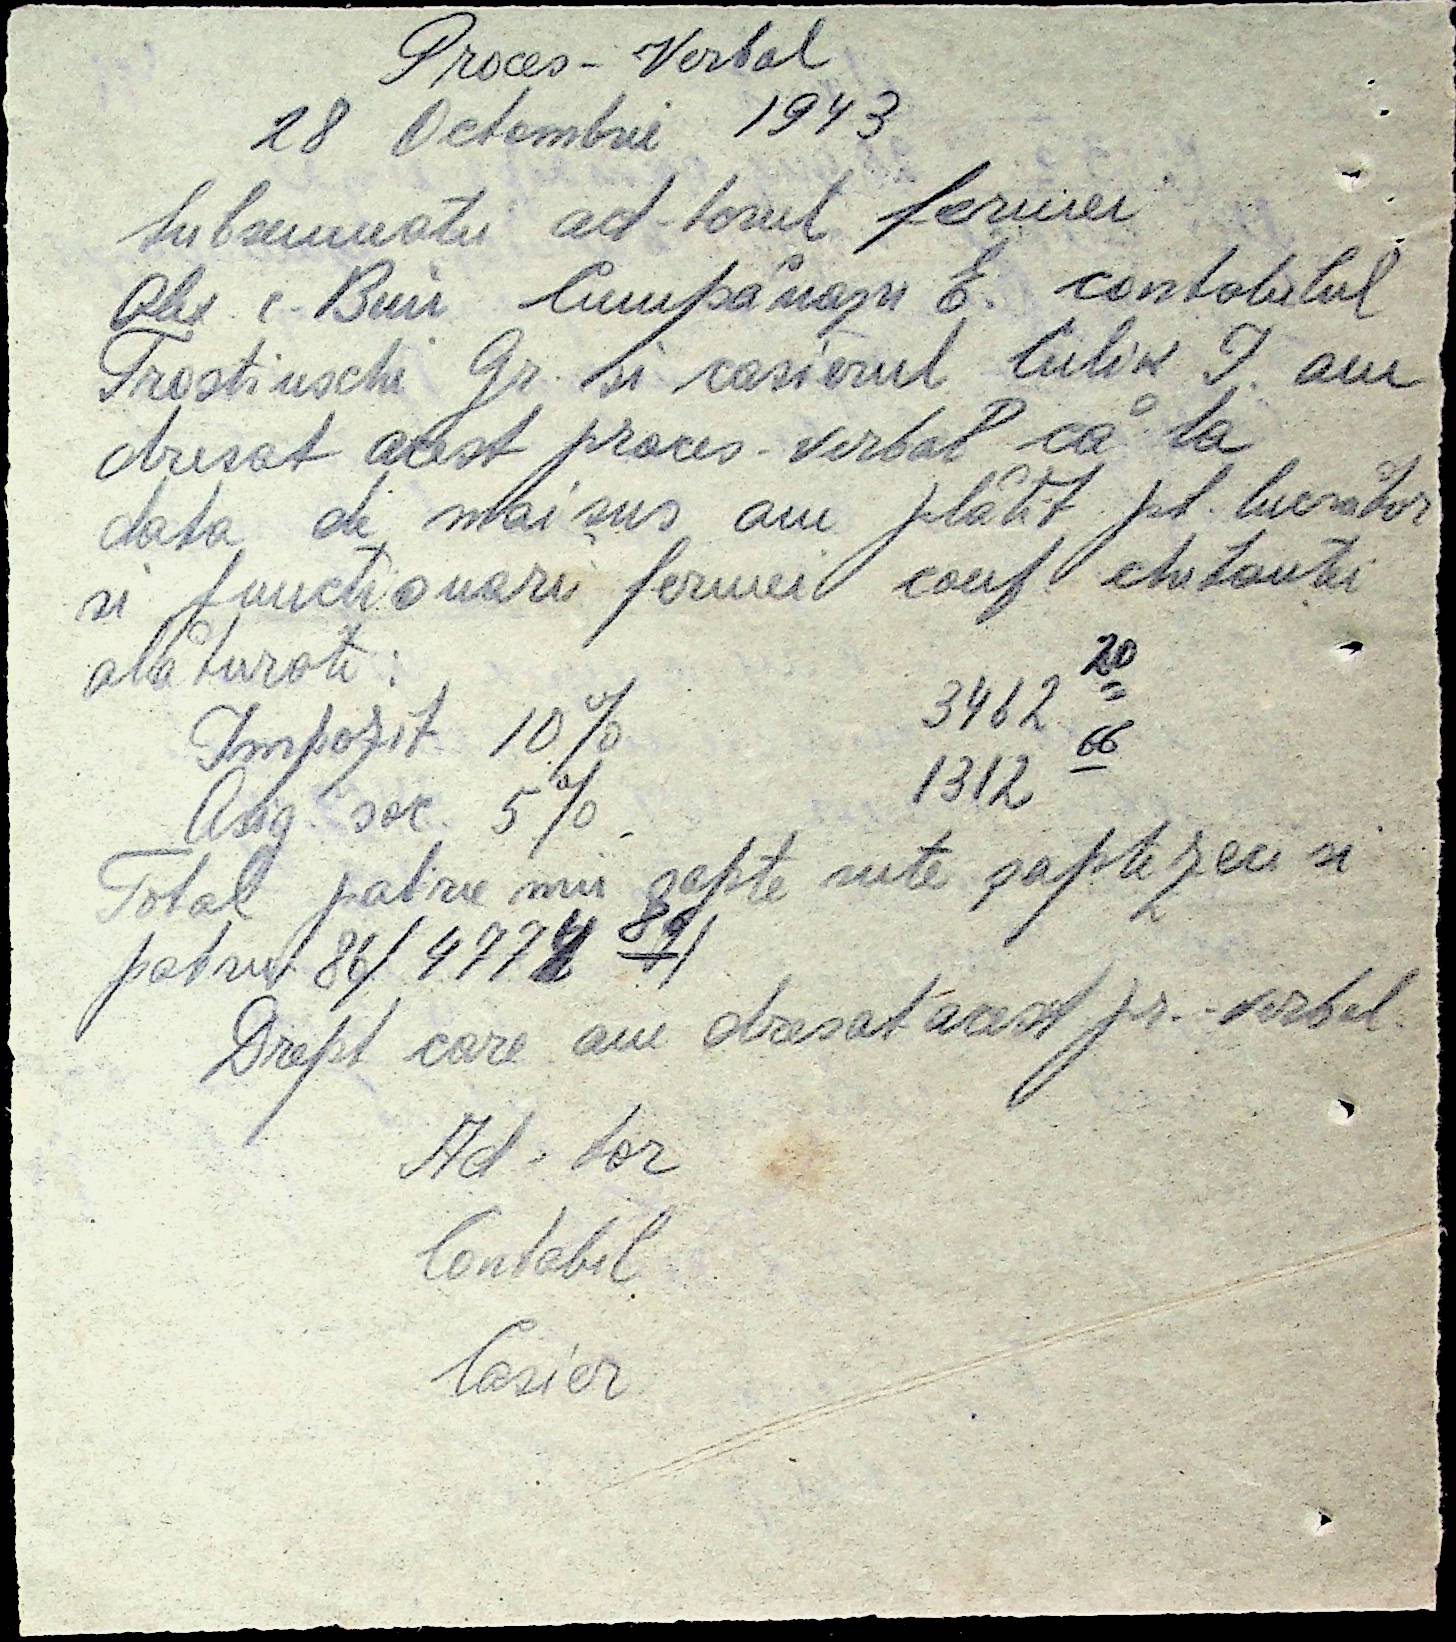 Proces - Verbal
28 Octombrie 1943
Subsemnatu ad-torul fermei
Cumpănașu E. contabilul
Trostinschi Gr. si casierul Culik I. am
dresat acest proces-verbal că la
data de mai sus am plătit pt. lucrător
si functionarii fermei conf chitantei
alăturate:
Impozit 10% 3462 20
Asig. soc. 5% 1312 66
Total patru mii șapte sute șaptezeci si
patru 86/ 4774
Drept care am dresat acest pr.-verbal.
Ad-tor
Contabil
Casier